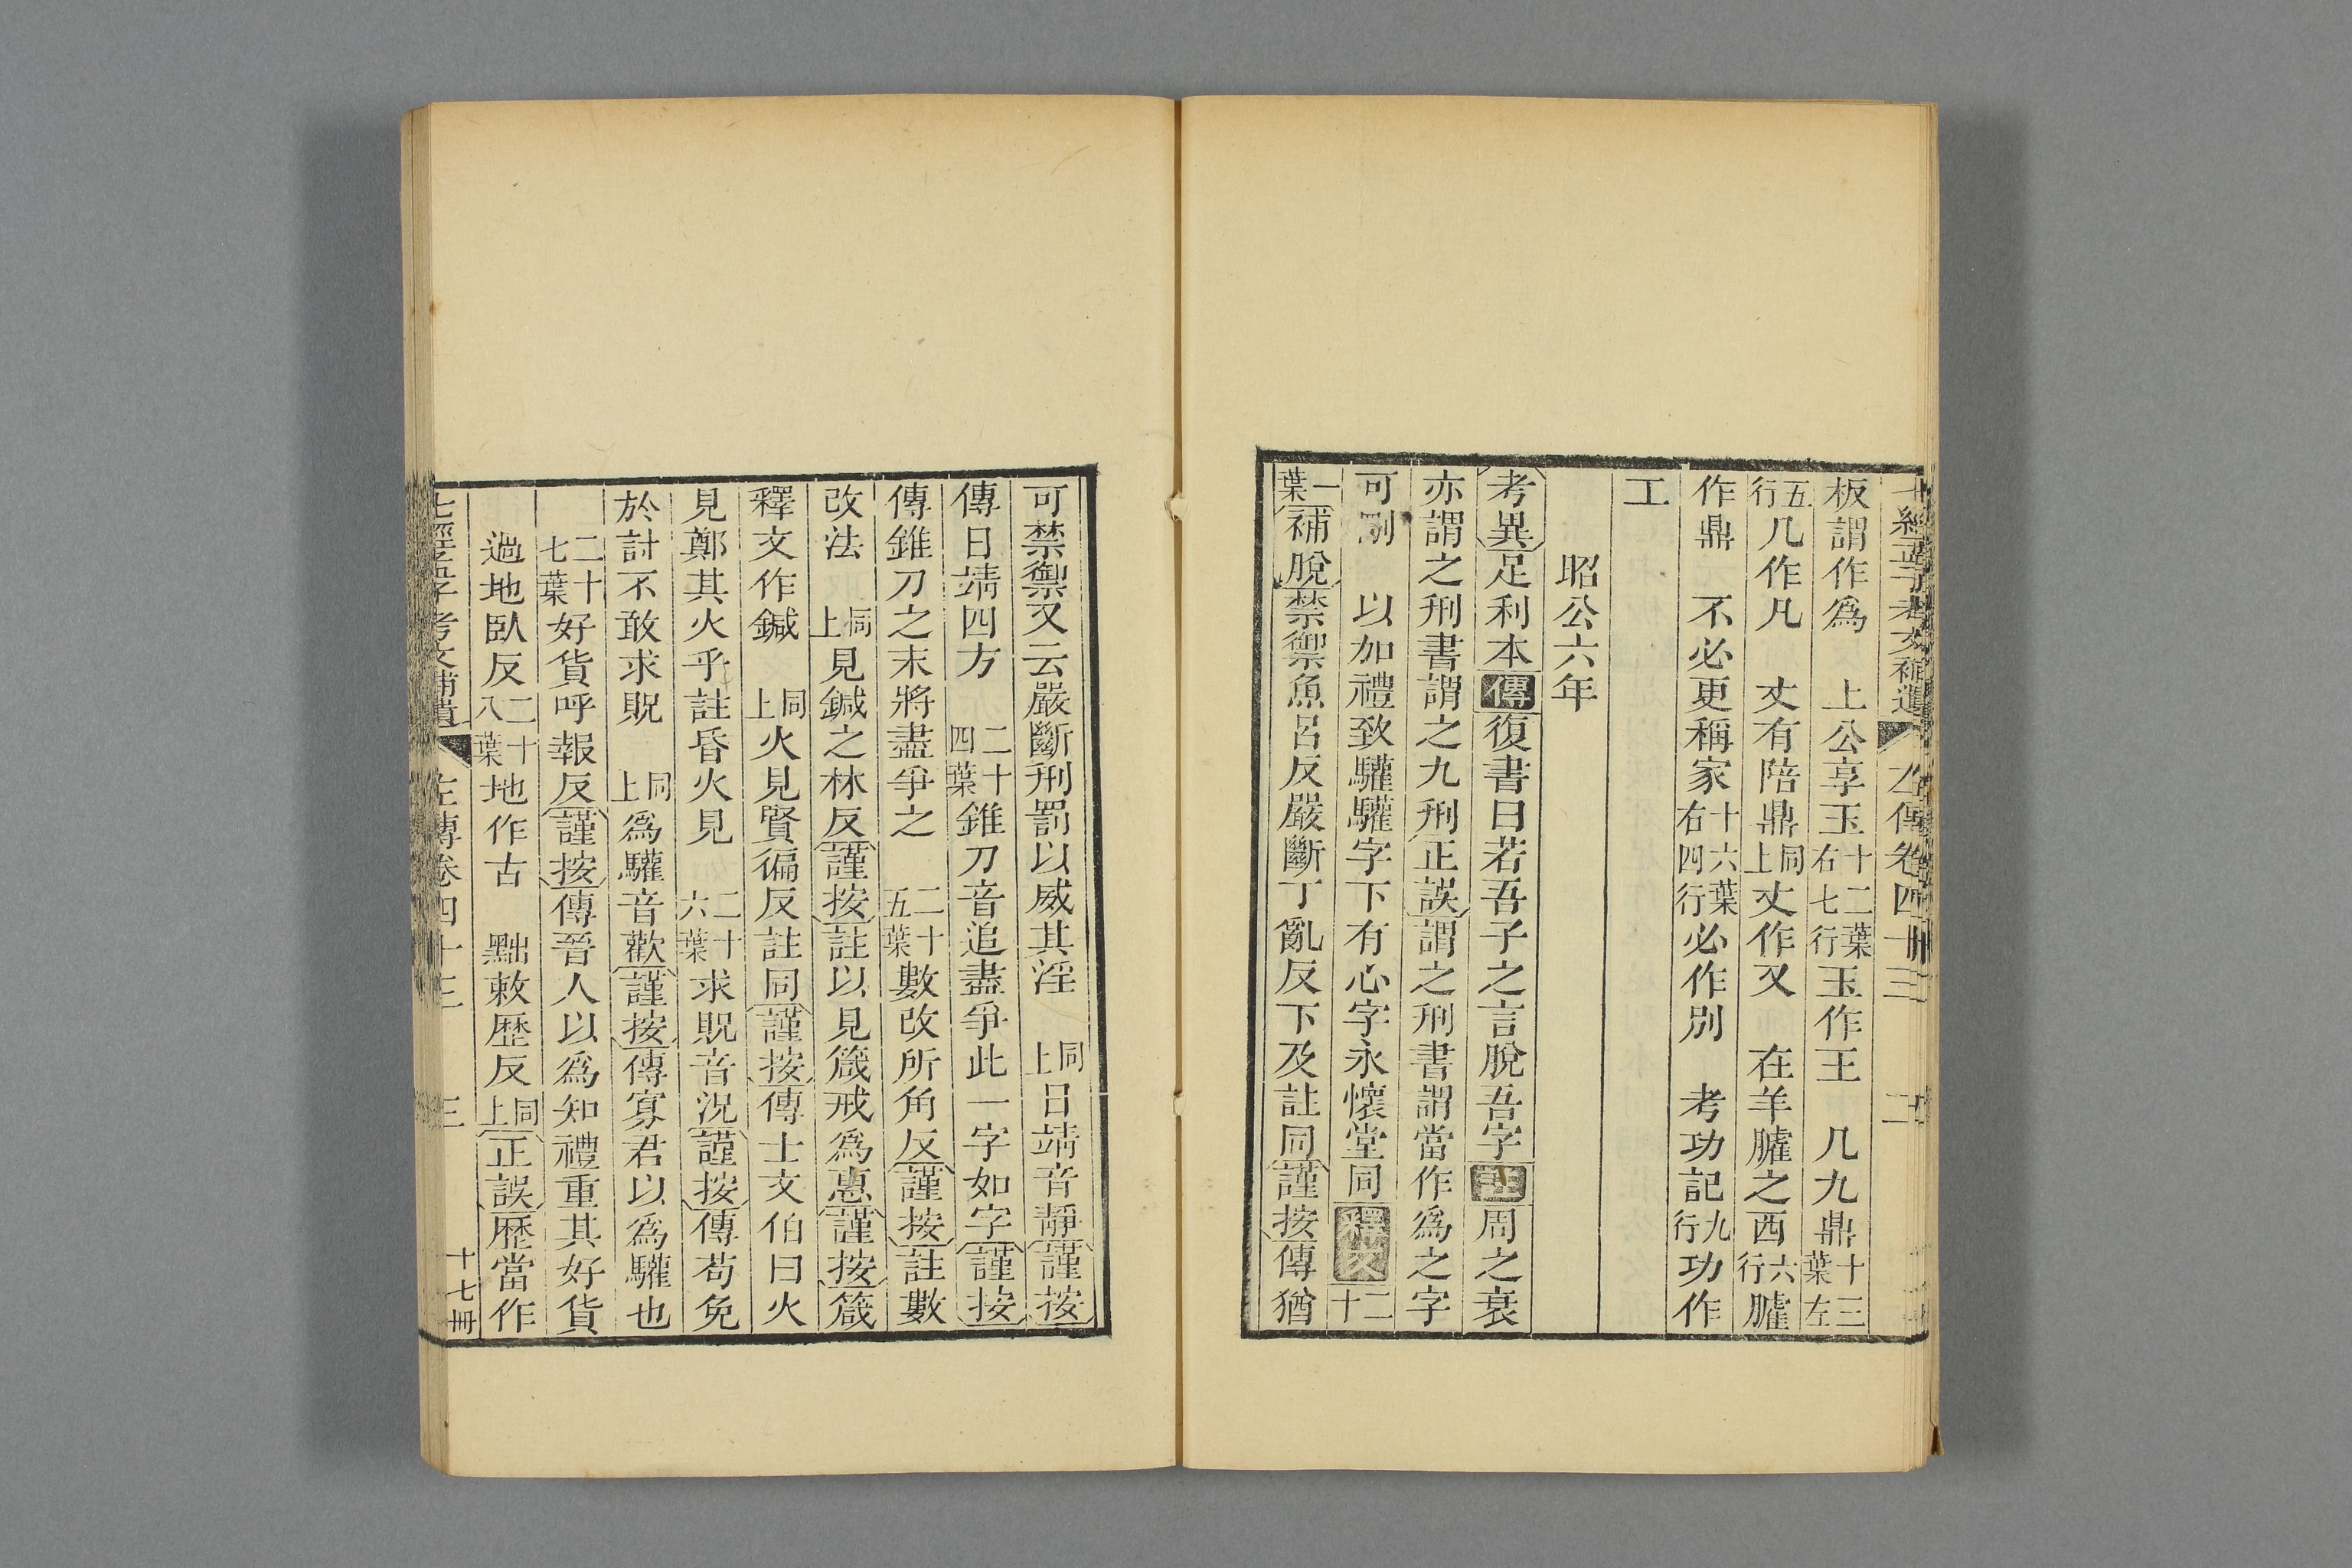 七經孟子考文補遺 左傳卷四十三 二
板謂作爲 上公享玉十二葉右七行玉作王 几九鼎十三葉左
五行几作凡 丈有陪鼎同上丈作又 在羊臛之西六行臛
作鼎 不必更稱家十六葉右四行必作別 考功記九行功作
工
昭公六年
考異足利本傳復書曰若吾子之言脫吾字註周之衰
亦謂之刑書謂之九刑正誤謂之刑書謂當作爲之字
可刪 以加禮致驩驩字下有心字永懷堂同釋文二十
一葉補脫禁禦魚呂反嚴斷丁亂反下及註同謹按傳猶
可禁禦又云嚴斷刑罰以威其淫 同上日靖音靜謹按
傳日靖四方 二十四葉錐刀音追盡爭此一字如字謹按
傳錐刀之末將盡爭之 二十五葉數改所角反謹按註數
改法 同上見鍼之林反謹按註以見箴戒爲惠謹按箴
釋文作鍼 同上火見賢徧反註同謹按傳士文伯曰火
見鄭其火乎註昏火見 二十六葉求貺音況謹按傳苟免
於討不敢求貺 同上爲驩音歡謹按傳寡君以爲驩也
二十七葉好貨呼報反謹按傳晉人以爲知禮重其好貨
過地臥反二十八葉地作古 黜敕歷反同上正誤歷當作
七經孟子考文補遺 左傳卷四十三 三 十七冊